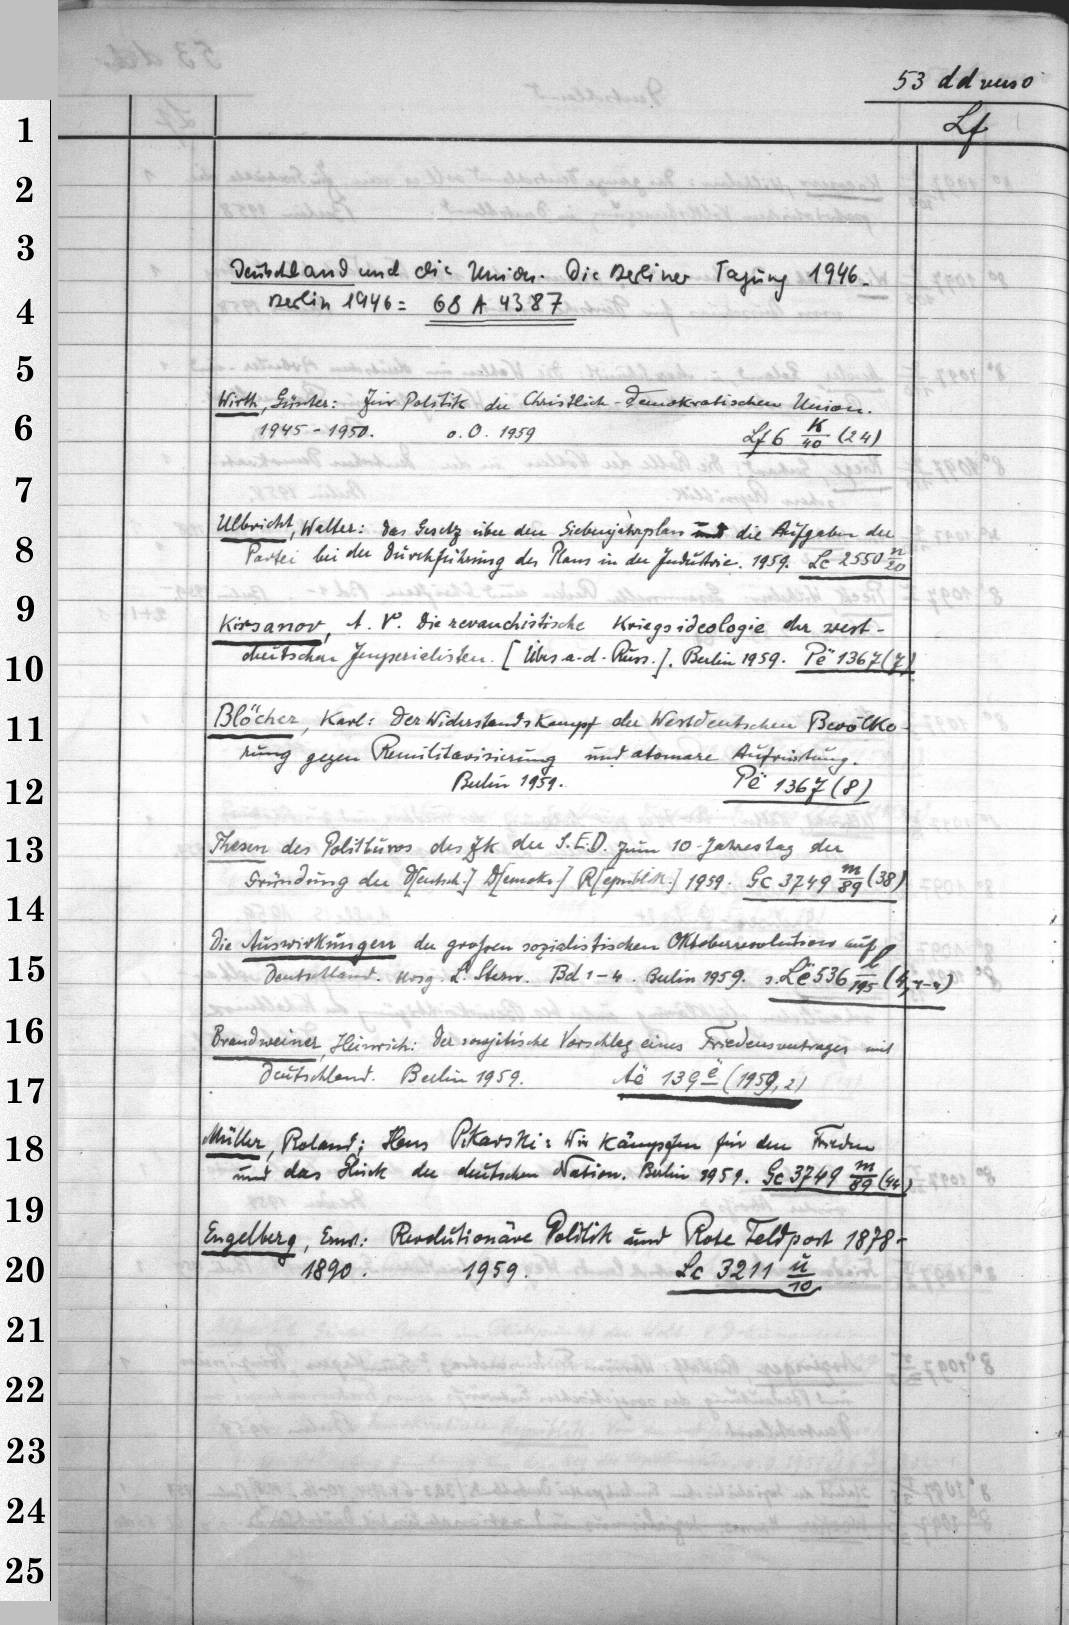 53 dd verso
Lf
1
2
3
Deutschland und die Union. Die Berliner Tagung 1946.
4
Berlin 1946 = 68 A 4387
5
Wirth, Günter: Zur Politik der Christlich-Demokratischen Union.
6
1945-1950. o.O. 1959 Lf 6 K/40 (24)
7
Ulbricht, Walter: Das Gesetz über den Siebenjahrplan und die Aufgaben der
8
Partei bei der Durchführung des Plans in der Industrie. 1959. Lc 2550 n/20
9
Kirsanov, A. V. Die revanchistische Kriegsideologie der west-
10
deutschen Imperialisten. [Übers. a. d. Russ.]. Berlin 1959. Pë 1367 (7)
11
Blöcher, Karl: Der Widerstandskampf der Westdeutschen Bevölke-
rung gegen Remilitarisierung und atomare Aufrüstung.
12
Berlin 1959. Pë 1367 (8)
13
Thesen des Politbüros des ZK der S.E.D. zum 10-Jahrestag der
Gründung der D[eutsch.] D[emokr.] R[epublik.] 1959. Gc 3749 m/89 (38)
14
Die Auswirkungen der grossen sozialistischen Oktoberrevolution auf
15
Deutschland. Hrsg. L. Stern. Bd 1-4. Berlin 1959. s. Lë 536 l/195 (4,1-4)
16
Brandweiner, Heinrich: Der sowjetische Vorschlag eines Friedensvertrages mit
17
Deutschland. Berlin 1959. Aë 139 ë (1959,2)
18
Müller, Roland; Hans Pikarski: Wir kämpfen für den Frieden
und das Glück der deutschen Nation. Berlin 1959. Gc 3749 m/89 (44)
19
Engelberg, Ernst: Revolutionäre Politik und Rote Feldpost 1878-
20
1890. 1959. Lc 3211 ü/10
21
22
23
24
25